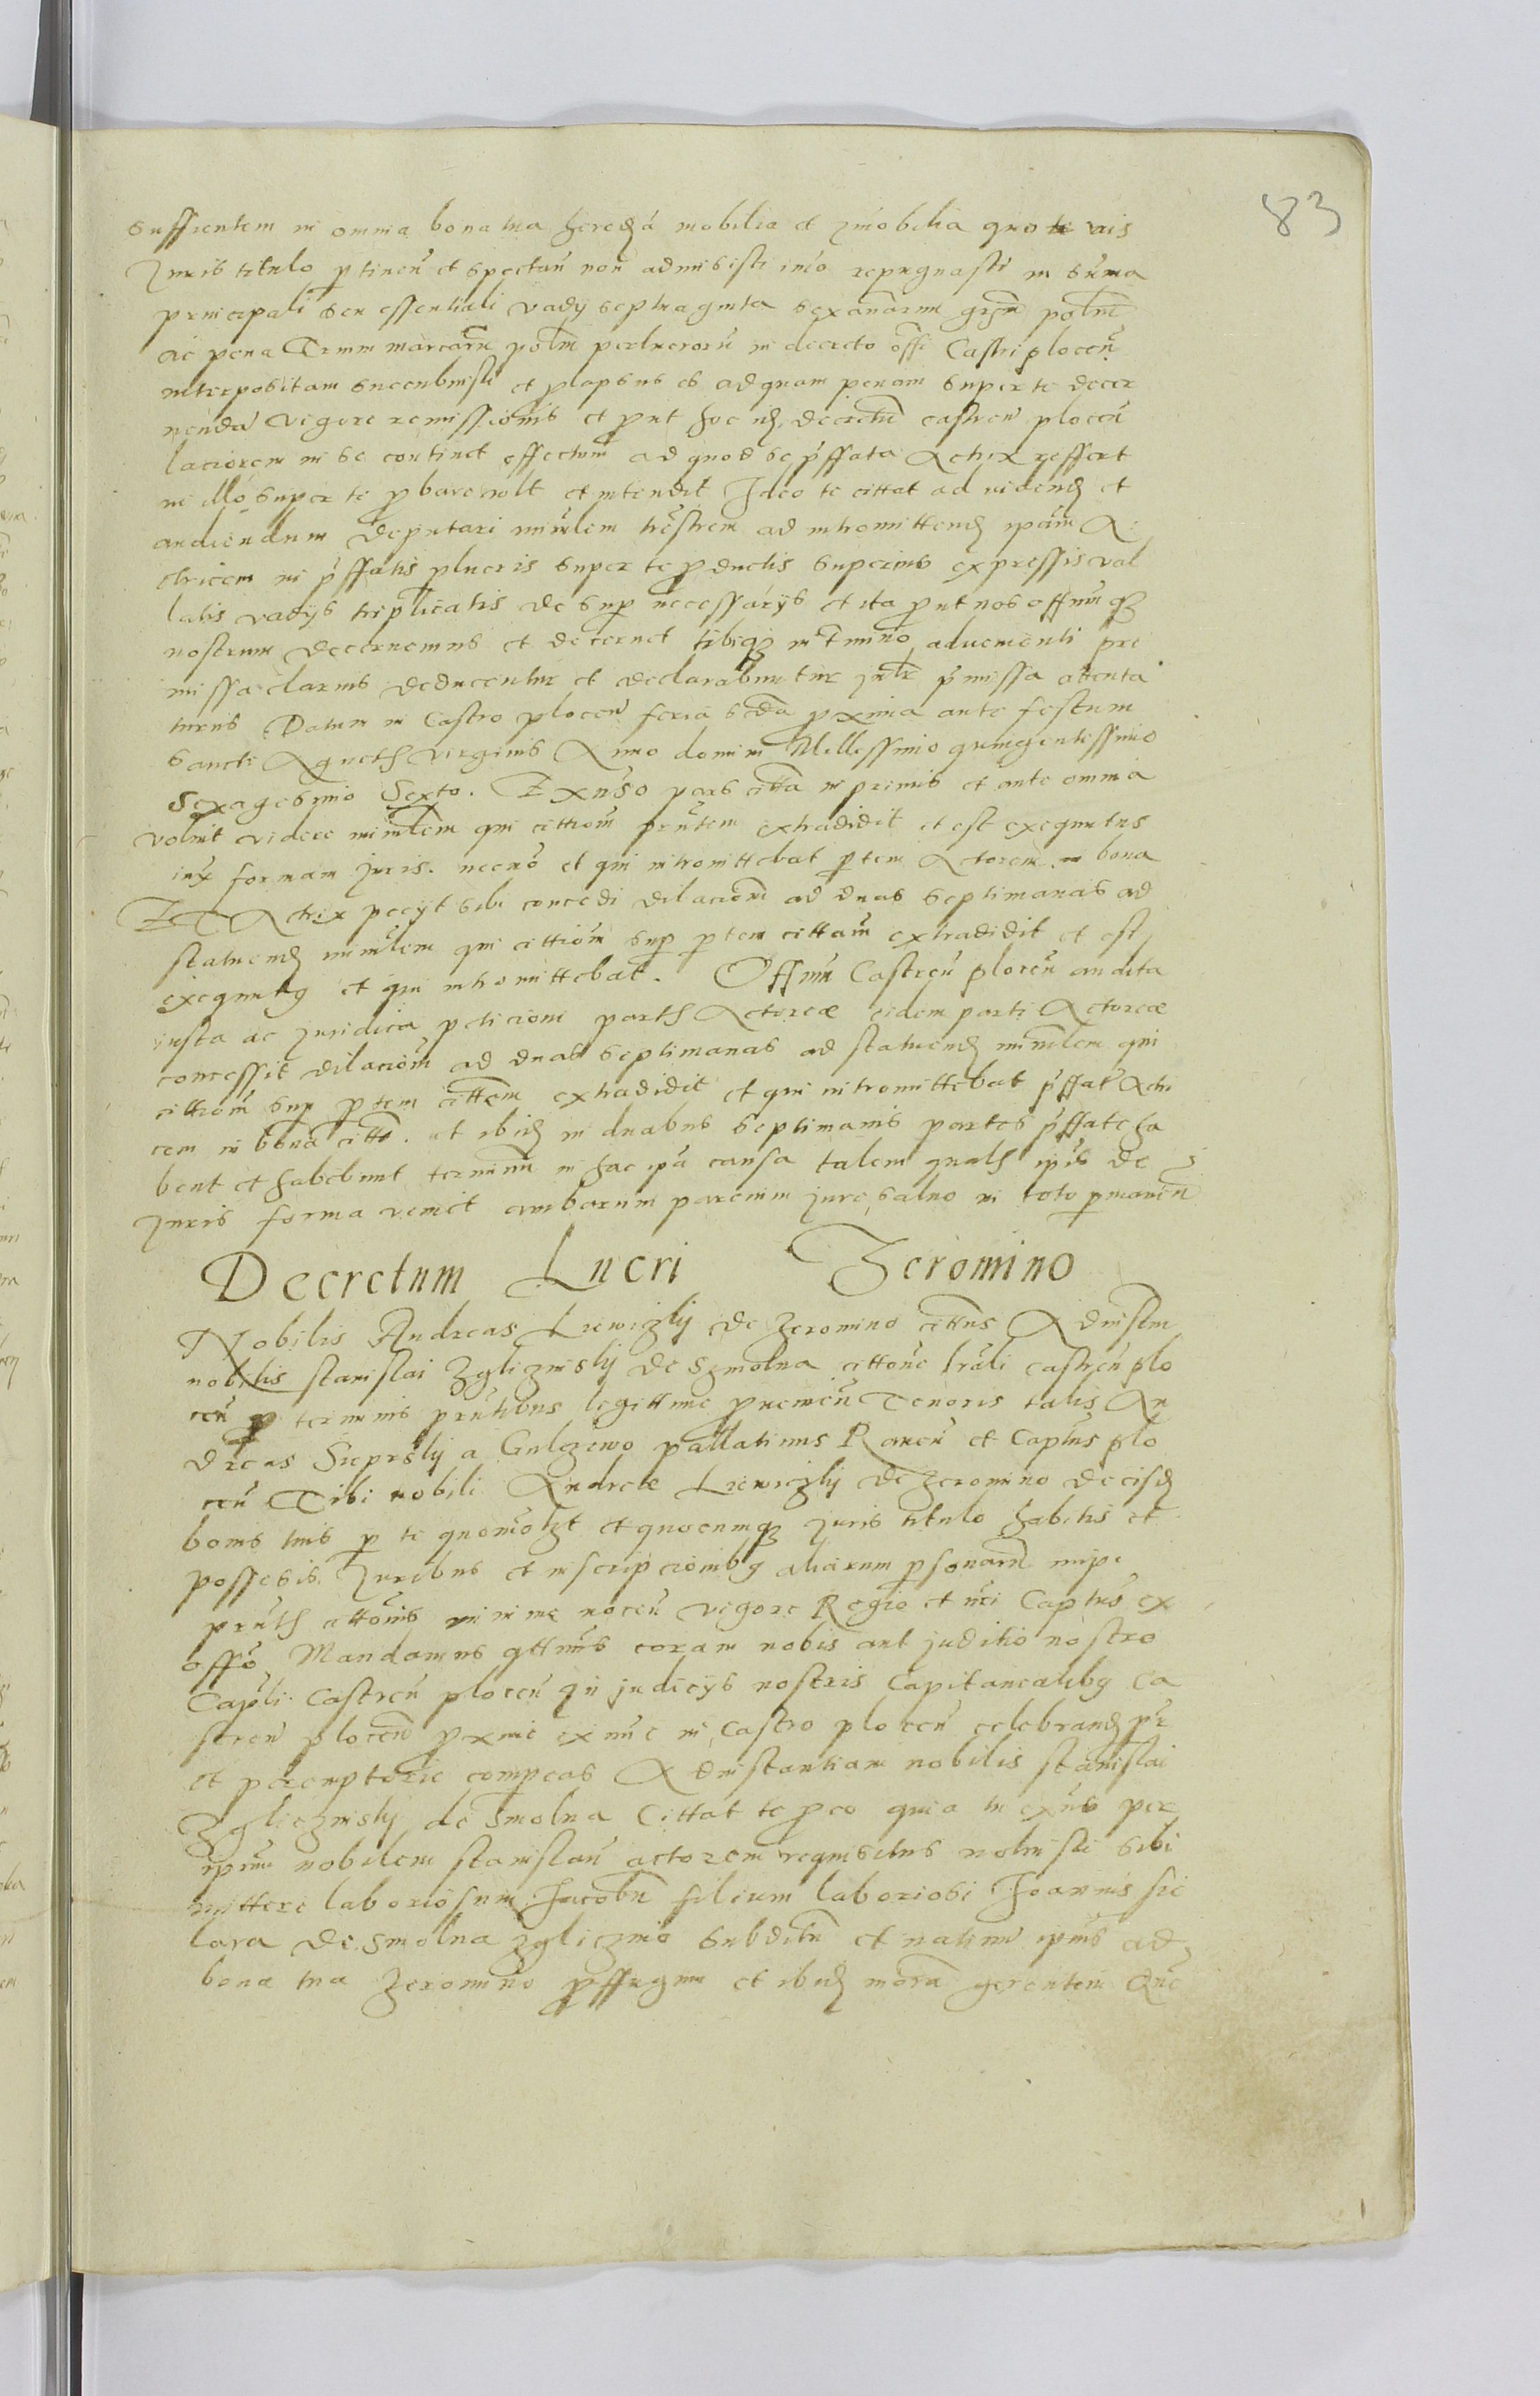 83
suffientem in omnia bona tua hereda mobilia et imobilia quo te vis
Juris titulo ptinen et spectan non admisisti imo repugnasti in suma
principali seu essentiali vadij septuaginta sexanarum polne
ac pena Trium marcaru polni perlucroru in decreto offi Castri plocen
interpositam succubuisti et plapsus es ad quam penam super te decer
nenda vigore remissionis et put hoc decretu castren plocen
laciorem in se continet effectum ad quod se pffata Actrix reffert
in illo super te pbare volt et intendit Ideo te cittat ad videnD et
audiendum deputari mirlem trestrem ad intromittenD ipam A
ctricem in pffatis plucris super te pductis superius expressis val
latis vadijs triplicatis de sup necessarijs et ita put nos offnm q
nostrum decernemus et decernet tibiq in tmino advenienti pre
missa clarius deducentur et declarabuntur pmissa attenta
turus Datum in Castro plocen feria scda pxima ante festum
Sancte Agneth virginis Anno domini Millessimo quingentessimo
Sexagesimo Sexto. Exnso pars citta in primis et ante omnia
voluit videre minrlem qui cittiom prntem extradidit et est exequutus
iux formam juris. necno et qui intromittebat ptem Actorem in bona
ET Actrix pecyt sibi concedi dilaciom ad duas septimanas ad
statuenD minrlem qui cittiom sup ptem cittam extradidit et est
exequutq et qui intromittebat. Offnm Castren plocen audita
iusta ac juridica peticione parth Actoreæ eidem parti Actoreæ
concessit dilaciom ad duas septimanas ad statuenD minrlem qui
cittiom sup ptem cittem extradidit et qui intromittebat pffat Actri
cem in bona citte. ut ibiD in duabus septimanis partes pffate ha
bent et habebunt terminu in hac ipa causa talem qualh ipis de
juris forma venit ambarum parcium jure salvo in toto pmanen
Decretum Lucri Zeromino
Nobilis Andreas de Zeromino cittus Adinstm
nobilis stanislai Zgliczinslij de Szmolna cittone trali castren plo
cen p terminis prntibus legittime pvenien Tenoris talis An
dreas Sieprslij a Gulczewo pallatinus Raven et Captus plo
cen Tibi nobili Andreæ de Zeromino de eisD
bonis tuis p te quomolzt et quocumq juris titulo habitis et
possesis Juribus et inscripcionibq aliarum psonaru nipi
prnth cittonis minime nocen vigore Regio et nri Captus ex
offo Mandamus qttnus coram nobis aut juditio nostro
Capli Castren plocen in judicijs nostris Capitanealibq Ca
stren plocen pxmie ex nunc in Castro plocen celebranD pr
et peremptorie compeas Adinstantiam nobilis stanislai
Zgliczinslij de Smolna Cittat te peo quia tu exns per
ipum nobilem stanislau actorem requisitus noluisti sibi
mittere laboriosum Jacobu filium laboriosi Joannis sie
lara de smolna zgliczino subditu et natiuu ipius ad
bona tua Zeromino pffugum et ibiD mora gerentem Que